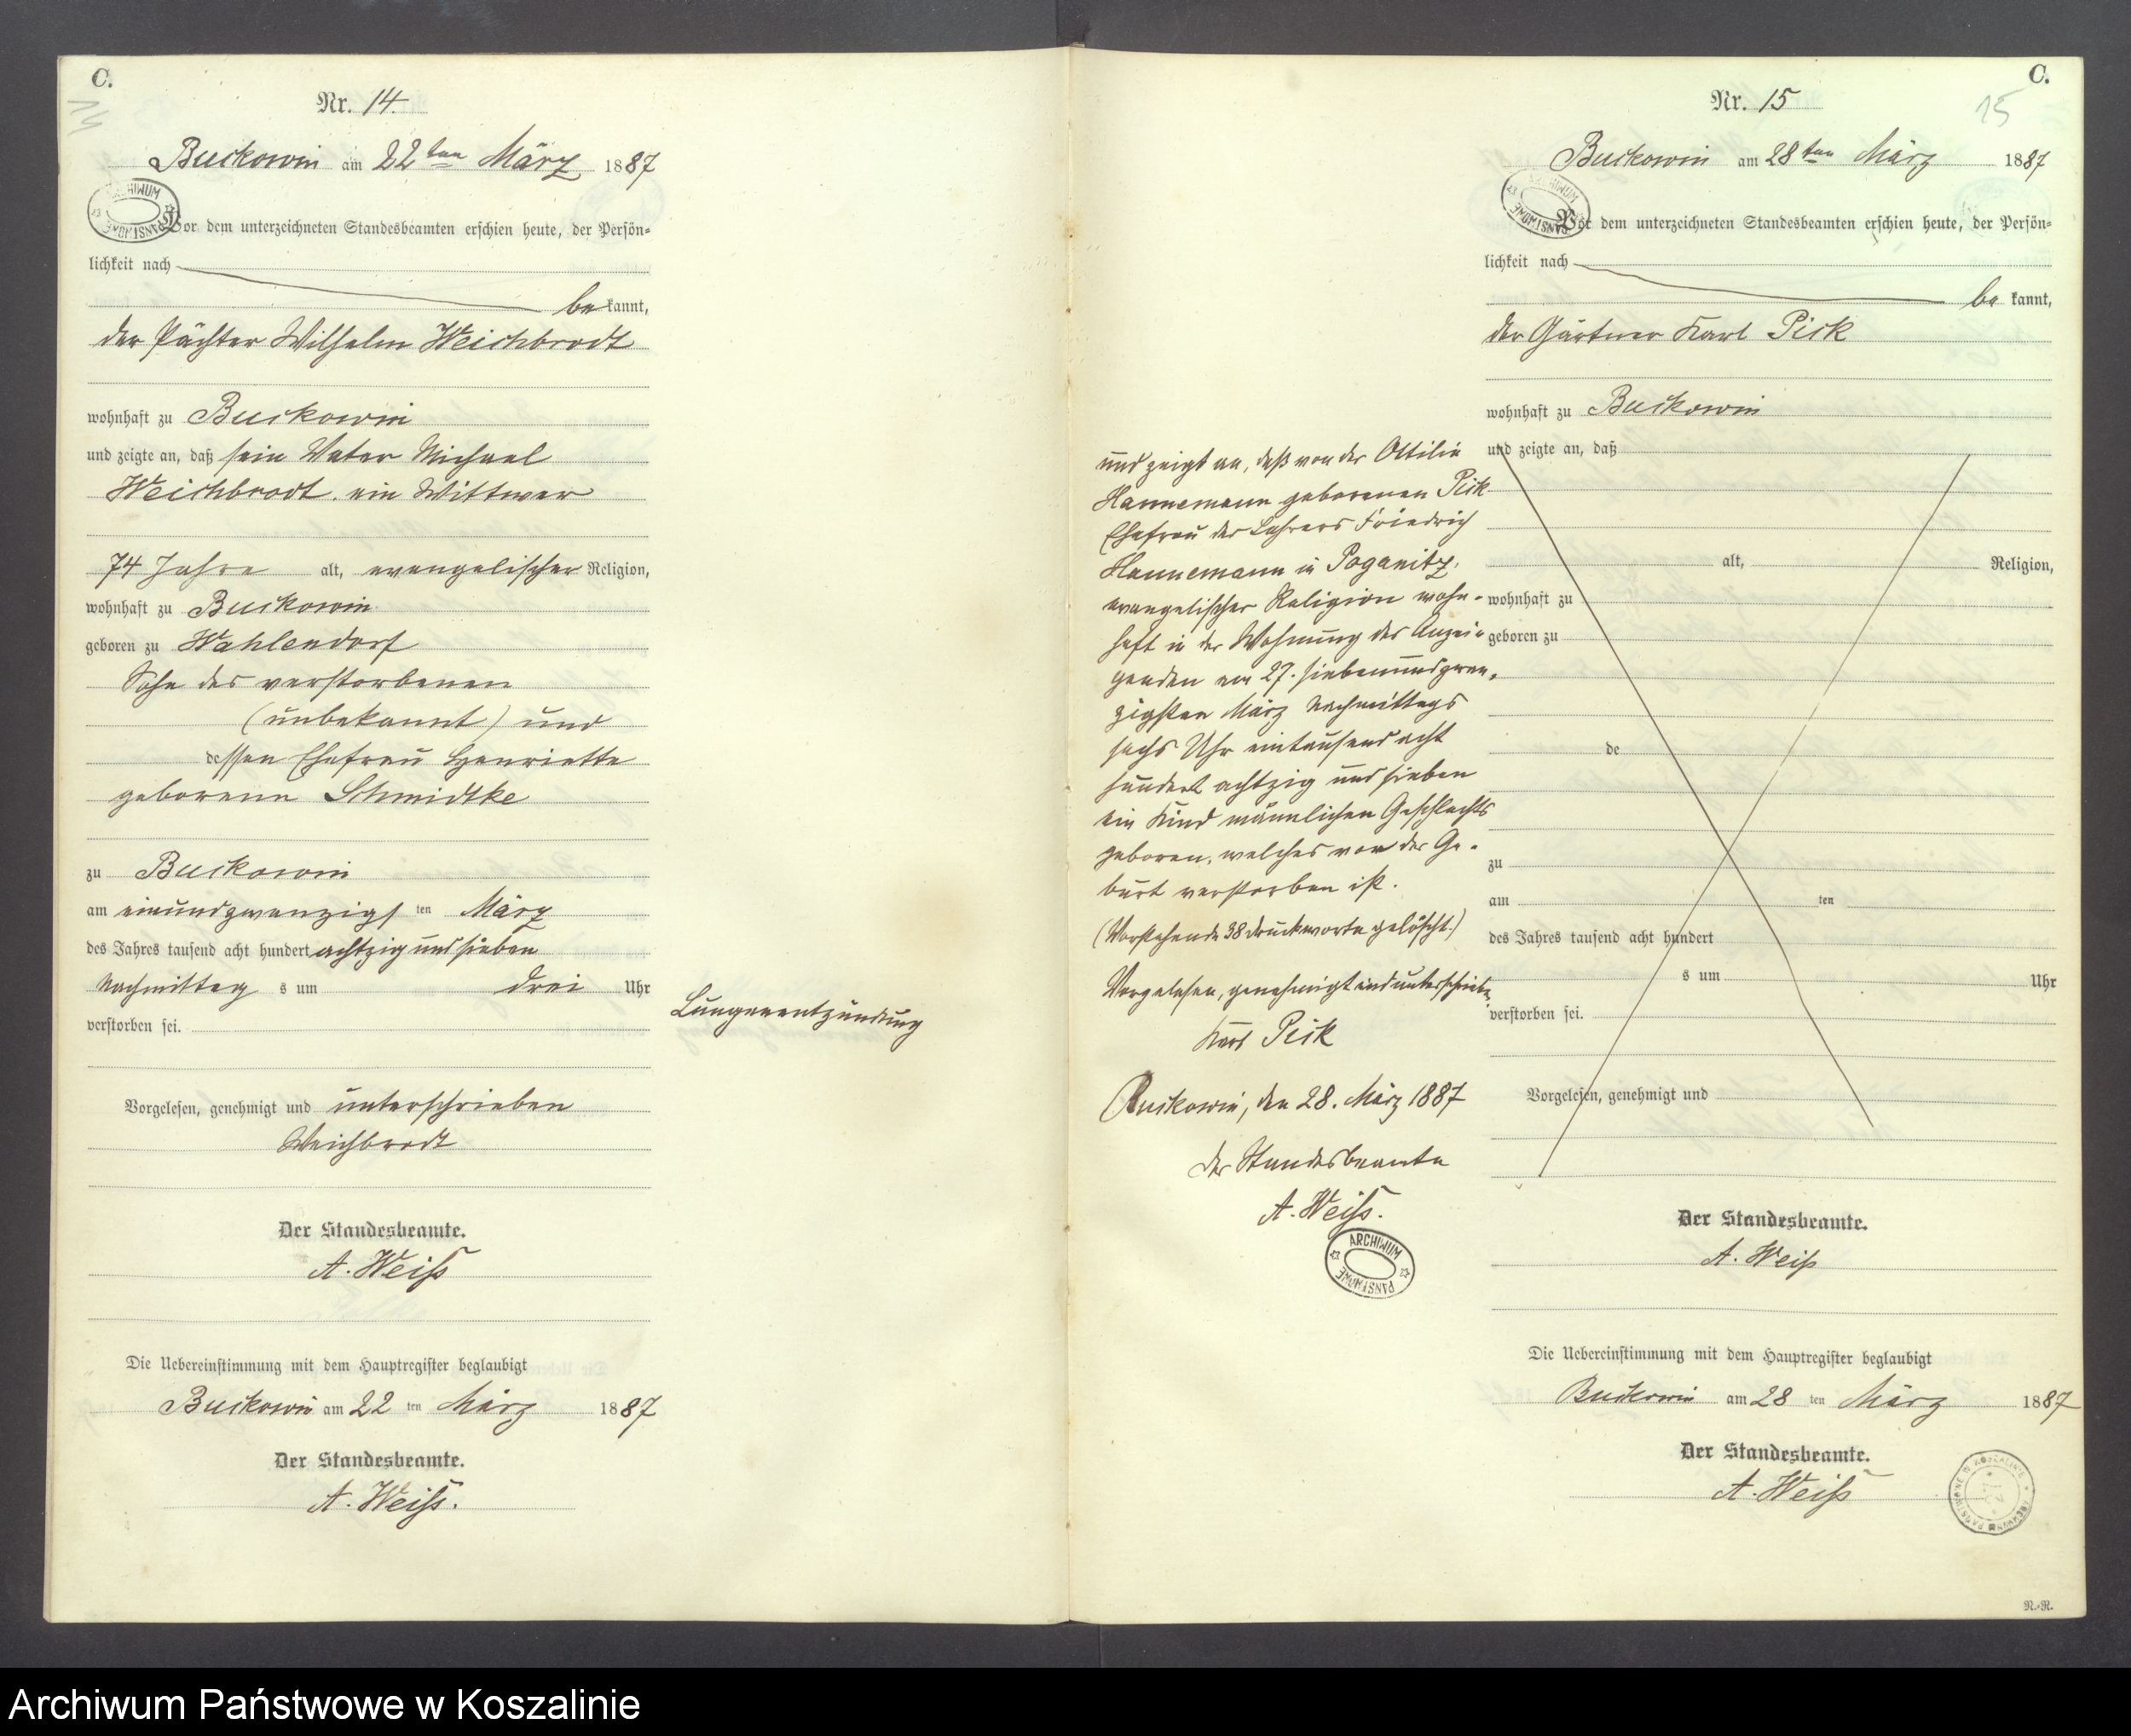 C.
14
Nr. 14.
Buckowin am 22ten März 1887
ARCHIWUM PAŃSTWOWE
Vor dem unterzeichneten Standesbeamten erschien heute, der Persön=
lichkeit nach
be kannt,
der Pächter Wilhelm Weichbrodt
wohnhaft zu Buckowin
und zeigte an, daß sein Vater Michael
Weichbrodt, ein Wittwer
74 Jahre alt, evangelischer Religion,
wohnhaft zu Buckowin
geboren zu Wahlendorf
Sohn des verstorbenen
(unbekannt) und
dessen Ehefrau Henriette
geborenen Schmidtke
zu Buckowin
am einundzwanzigsten März
des Jahres tausend acht hundert achtzig und sieben
Nachmittag s um drei Uhr
verstorben sei.
Lungenentzündung
Vorgelesen, genehmigt und unterschrieben
Weichbrodt
Der Standesbeamte.
A. Weiß
Die Uebereinstimmung mit dem Hauptregister beglaubigt
Buckowin am 22 ten März 1887
Der Standesbeamte.
A. Weiß.
C.
15
Nr. 15
Buckowin am 28ten März 1887
ARCHIWUM PAŃSTWOWE
Vor dem unterzeichneten Standesbeamten erschien heute, der Persön=
lichkeit nach
be kannt,
der Gärtner Karl Pick
wohnhaft zu Buckowin
und zeigte an, daß
alt, Religion,
wohnhaft zu
geboren zu
de
zu
am ten
des Jahres tausend acht hundert
s um Uhr
verstorben sei.
Vorgelesen, genehmigt und
und zeigt an, daß von der Ottilie
Hannemann geborenen Pick
Ehefrau des Lehrers Friedrich
Hannemann in Poganitz,
evangelischer Religion wohn-
haft in der Wohnung des Anzei-
genden am 27. siebenundzwan-
zigsten März Nachmittags
sechs Uhr eintausend acht
hundert achtzig und sieben
ein Kind männlichen Geschlechts
geboren, welches vor der Ge-
burt verstorben ist.
(Vorstehende 38 Druckworte gelöscht.)
Vorgelesen, genehmigt und unterschrieben
Karl Pick
Buckowin, den 28. März 1887
der Standesbeamte
A. Weiß.
ARCHIWUM PAŃSTWOWE
Der Standesbeamte.
A. Weiß
Die Uebereinstimmung mit dem Hauptregister beglaubigt
Buckowin am 28 ten März 1887
Der Standesbeamte.
A. Weiß
ARCHIWUM PAŃSTWOWE W KOSZALINIE
N.=R.
Archiwum Państwowe w Koszalinie